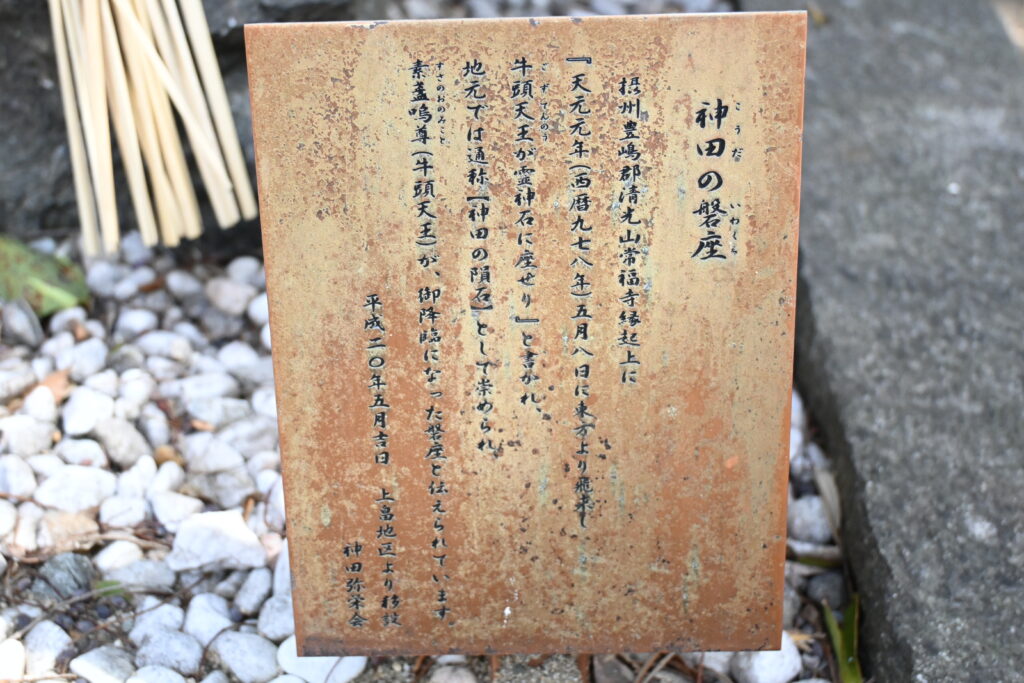 神田の磐座
こうだ
いわくら
摂州豊嶋郡清光山常福寺縁起上に
『天元元年(西暦九七八年)五月八日に東方より飛来し
牛頭天王が霊神石に座せり』と書かれ、
ごずてんのう
地元では通称【神田の隕石】として崇められ
素盞嗚尊(牛頭天王)が、御降臨になった磐座と伝えられています
すさのおのみこと
平成二〇年五月吉日 上畠地区より移設
神田弥栄会